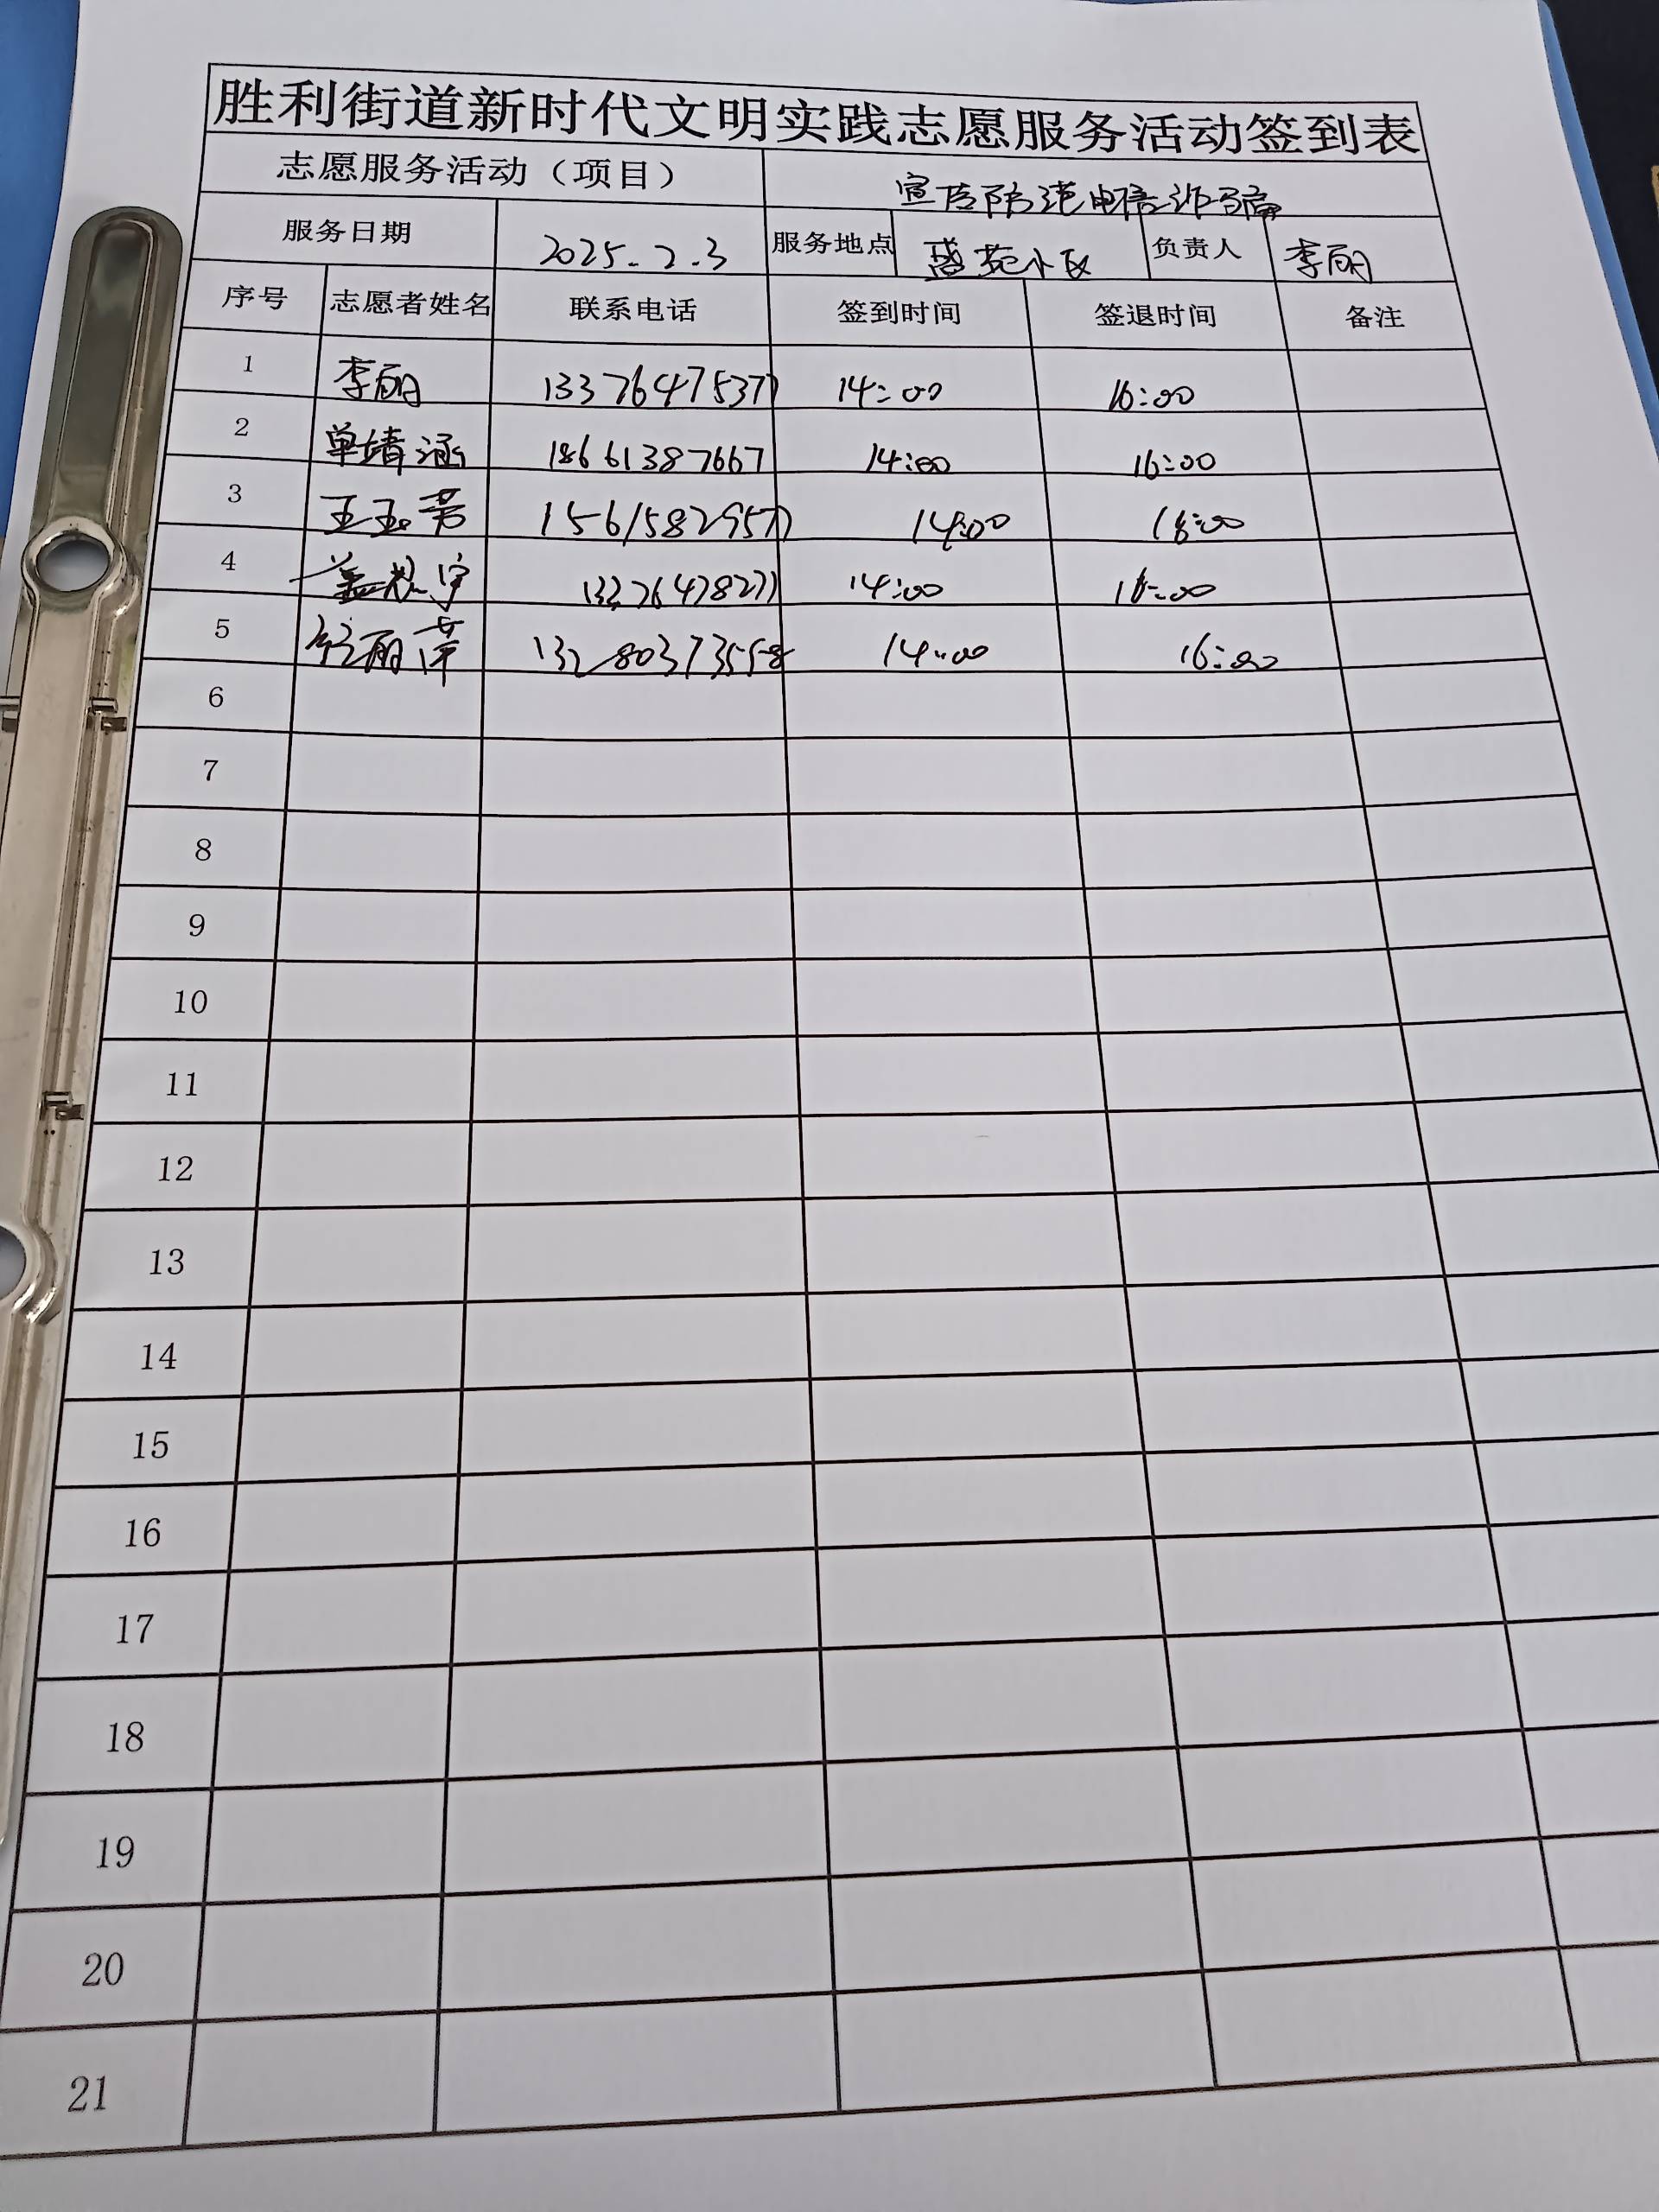 胜利街道新时代文明实践志愿服务活动签到表
志愿服务活动（项目） 宣传防范电信诈骗
服务日期 2025.2.3 服务地点 盛苑小区 负责人 李丽
序号 志愿者姓名 联系电话 签到时间 签退时间 备注
1 李丽 13376475377 14:00 16:00
2 单靖涵 18661387667 14:00 16:00
3 王玉芳 15615829577 14:00 16:00
4 14:00 16:00
5 13280373558 14:00 16:00
6
7
8
9
10
11
12
13
14
15
16
17
18
19
20
21